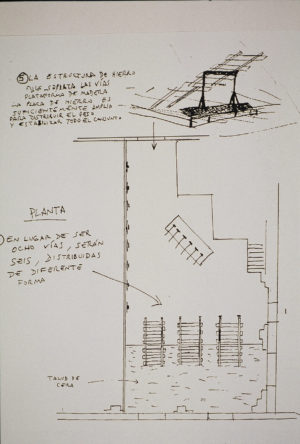 ⑤ LA ESTRUCTURA DE HIERRO
QUE SEPARA LAS VÍAS
PLATAFORMA DE MADERA
LA PLACA DE HIERRO ES
SUFICIENTEMENTE AMPLIA
PARA DISTRIBUIR EL PESO
Y ESTABILIZAR TODO EL CONJUNTO.
PLANTA
) EN LUGAR DE SER
OCHO VÍAS, SERÁN
SEIS, DISTRIBUIDAS
DE DIFERENTE
FORMA
TALUD DE
CERA